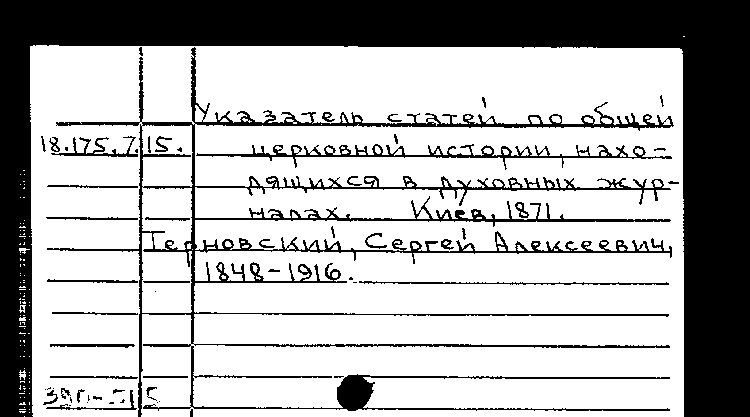 Указатель статей по общей
18.175.7.15. церковной истории, нахо-
дящихся в духовных жур-
налах. Киев, 1871.
Терновский, Сергей Алексеевич,
1848-1916.